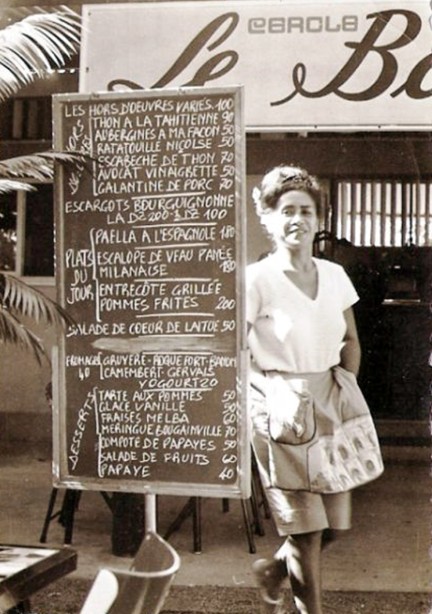 Le Bo
LES HORS D'OEUVRES VARIÉS. 100
THON A LA TAHITIENNE 90
AUBERGINES A MA FAÇON 50
RATATOUILLE NIÇOISE 50
ESCABECHE DE THON 70
AVOCAT VINAIGRETTE 50
GALANTINE DE PORC 70
ESCARGOTS BOURGUIGNONNE
LA DZ 200 - ½ DZ 100
PLATS DU JOUR
PAELLA A L'ESPAGNOLE 180
ESCALOPE DE VEAU PANÉE
MILANAISE 180
ENTRECÔTE GRILLÉE
POMMES FRITES 200
SALADE DE COEUR DE LAITUE 50
FROMAGES 40
GRUYÈRE - ROQUEFORT -
CAMEMBERT - GERVAIS
YOGOURT 20
DESSERTS
TARTE AUX POMMES 50
GLACE VANILLE 50
FRAISES MELBA 60
MERINGUE BOUGAINVILLE 70
COMPOTE DE PAPAYES 50
SALADE DE FRUITS 60
PAPAYE 40